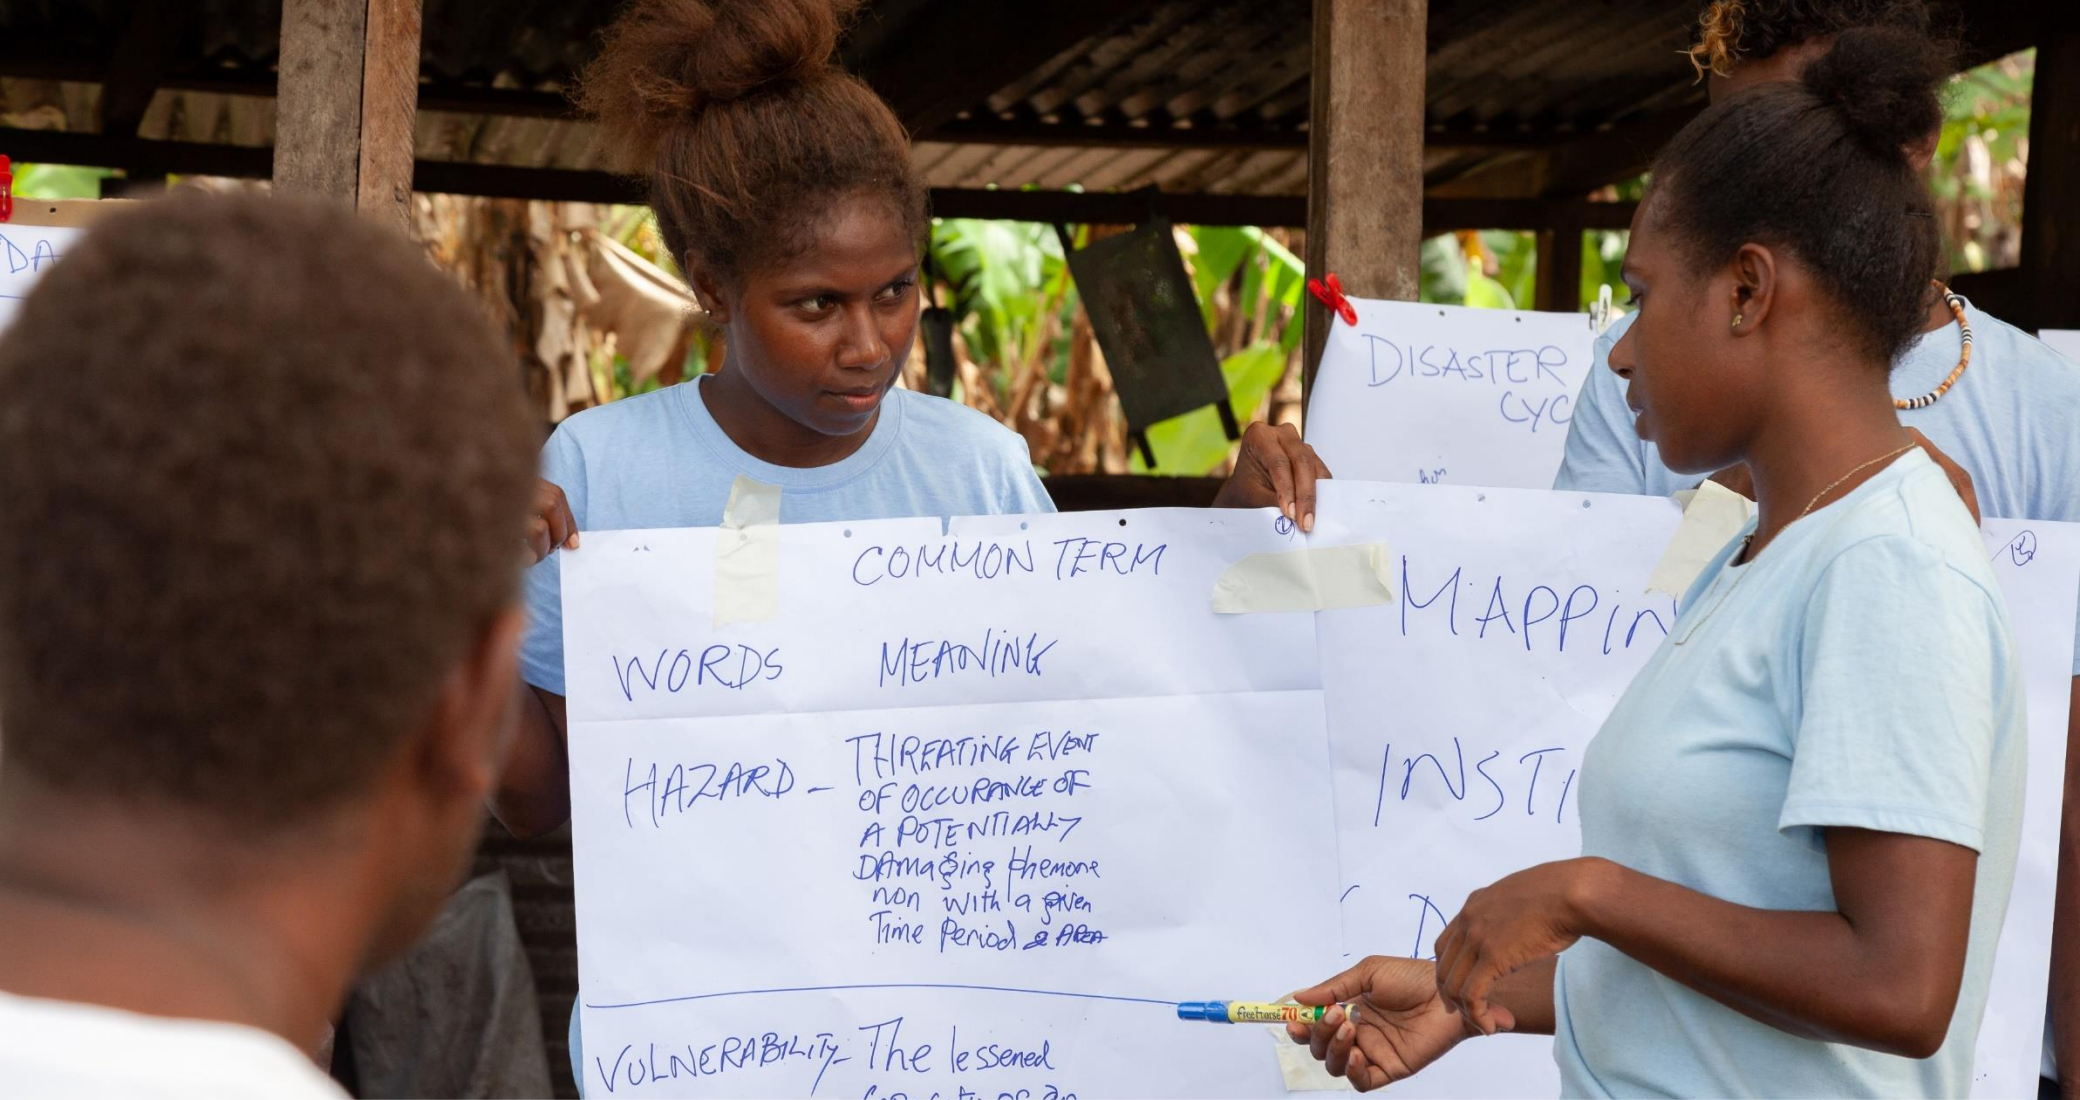 DA
DISASTER
CYC
COMMON TERM
WORDS MEANING
HAZARD - THREATING EVENT
OF OCCURANCE OF
A POTENTIALLY
DAMaging phemone
non with a given
Time Period & AREA
VULNERABILITY - The lessened
MAPPIN
INSTI
D
freehorse 70